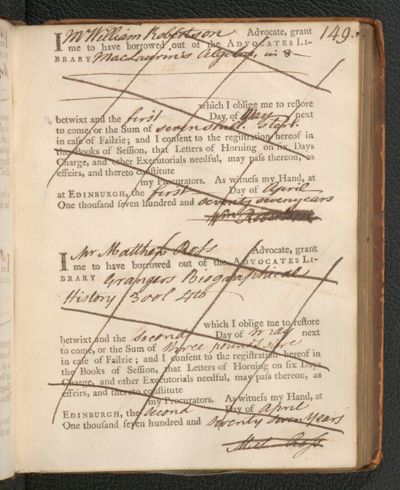 149.
I Mr William Robertson Advocate, grant
me to have borrowed out of the ADVOCATES LI-
BRARY MacLaurin's Algebra, in 8
which I oblige me to reſtore
betwixt and the first Day of May next
to come, or the Sum of seven shill. Sterl.
in caſe of Failzie; and I conſent to the regiſtration hereof in
the Books of Seſſion, that Letters of Horning on ſix Days
Charge, and other Executorials needful, may paſs thereon, as
effeirs, and thereto conſtitute
my Procurators. As witneſs my Hand, at
at EDINBURGH, the first Day of April
One thouſand ſeven hundred and seventy seven years
Wm Robertson
I Mr Matthew Ross Advocate, grant
me to have borrowed out of the ADVOCATES LI-
BRARY Grangers Biographical
History 3 vol 4to
which I oblige me to reſtore
betwixt and the Second Day of May next
to come, or the Sum of three pounds
in caſe of Failzie; and I conſent to the regiſtration hereof in
the Books of Seſſion, that Letters of Horning on ſix Days
Charge, and other Executorials needful, may paſs thereon, as
effeirs, and thereto conſtitute
my Procurators. As witneſs my Hand, at
EDINBURGH, the Second Day of April
One thouſand ſeven hundred and Seventy Seven Years
Matt Ross